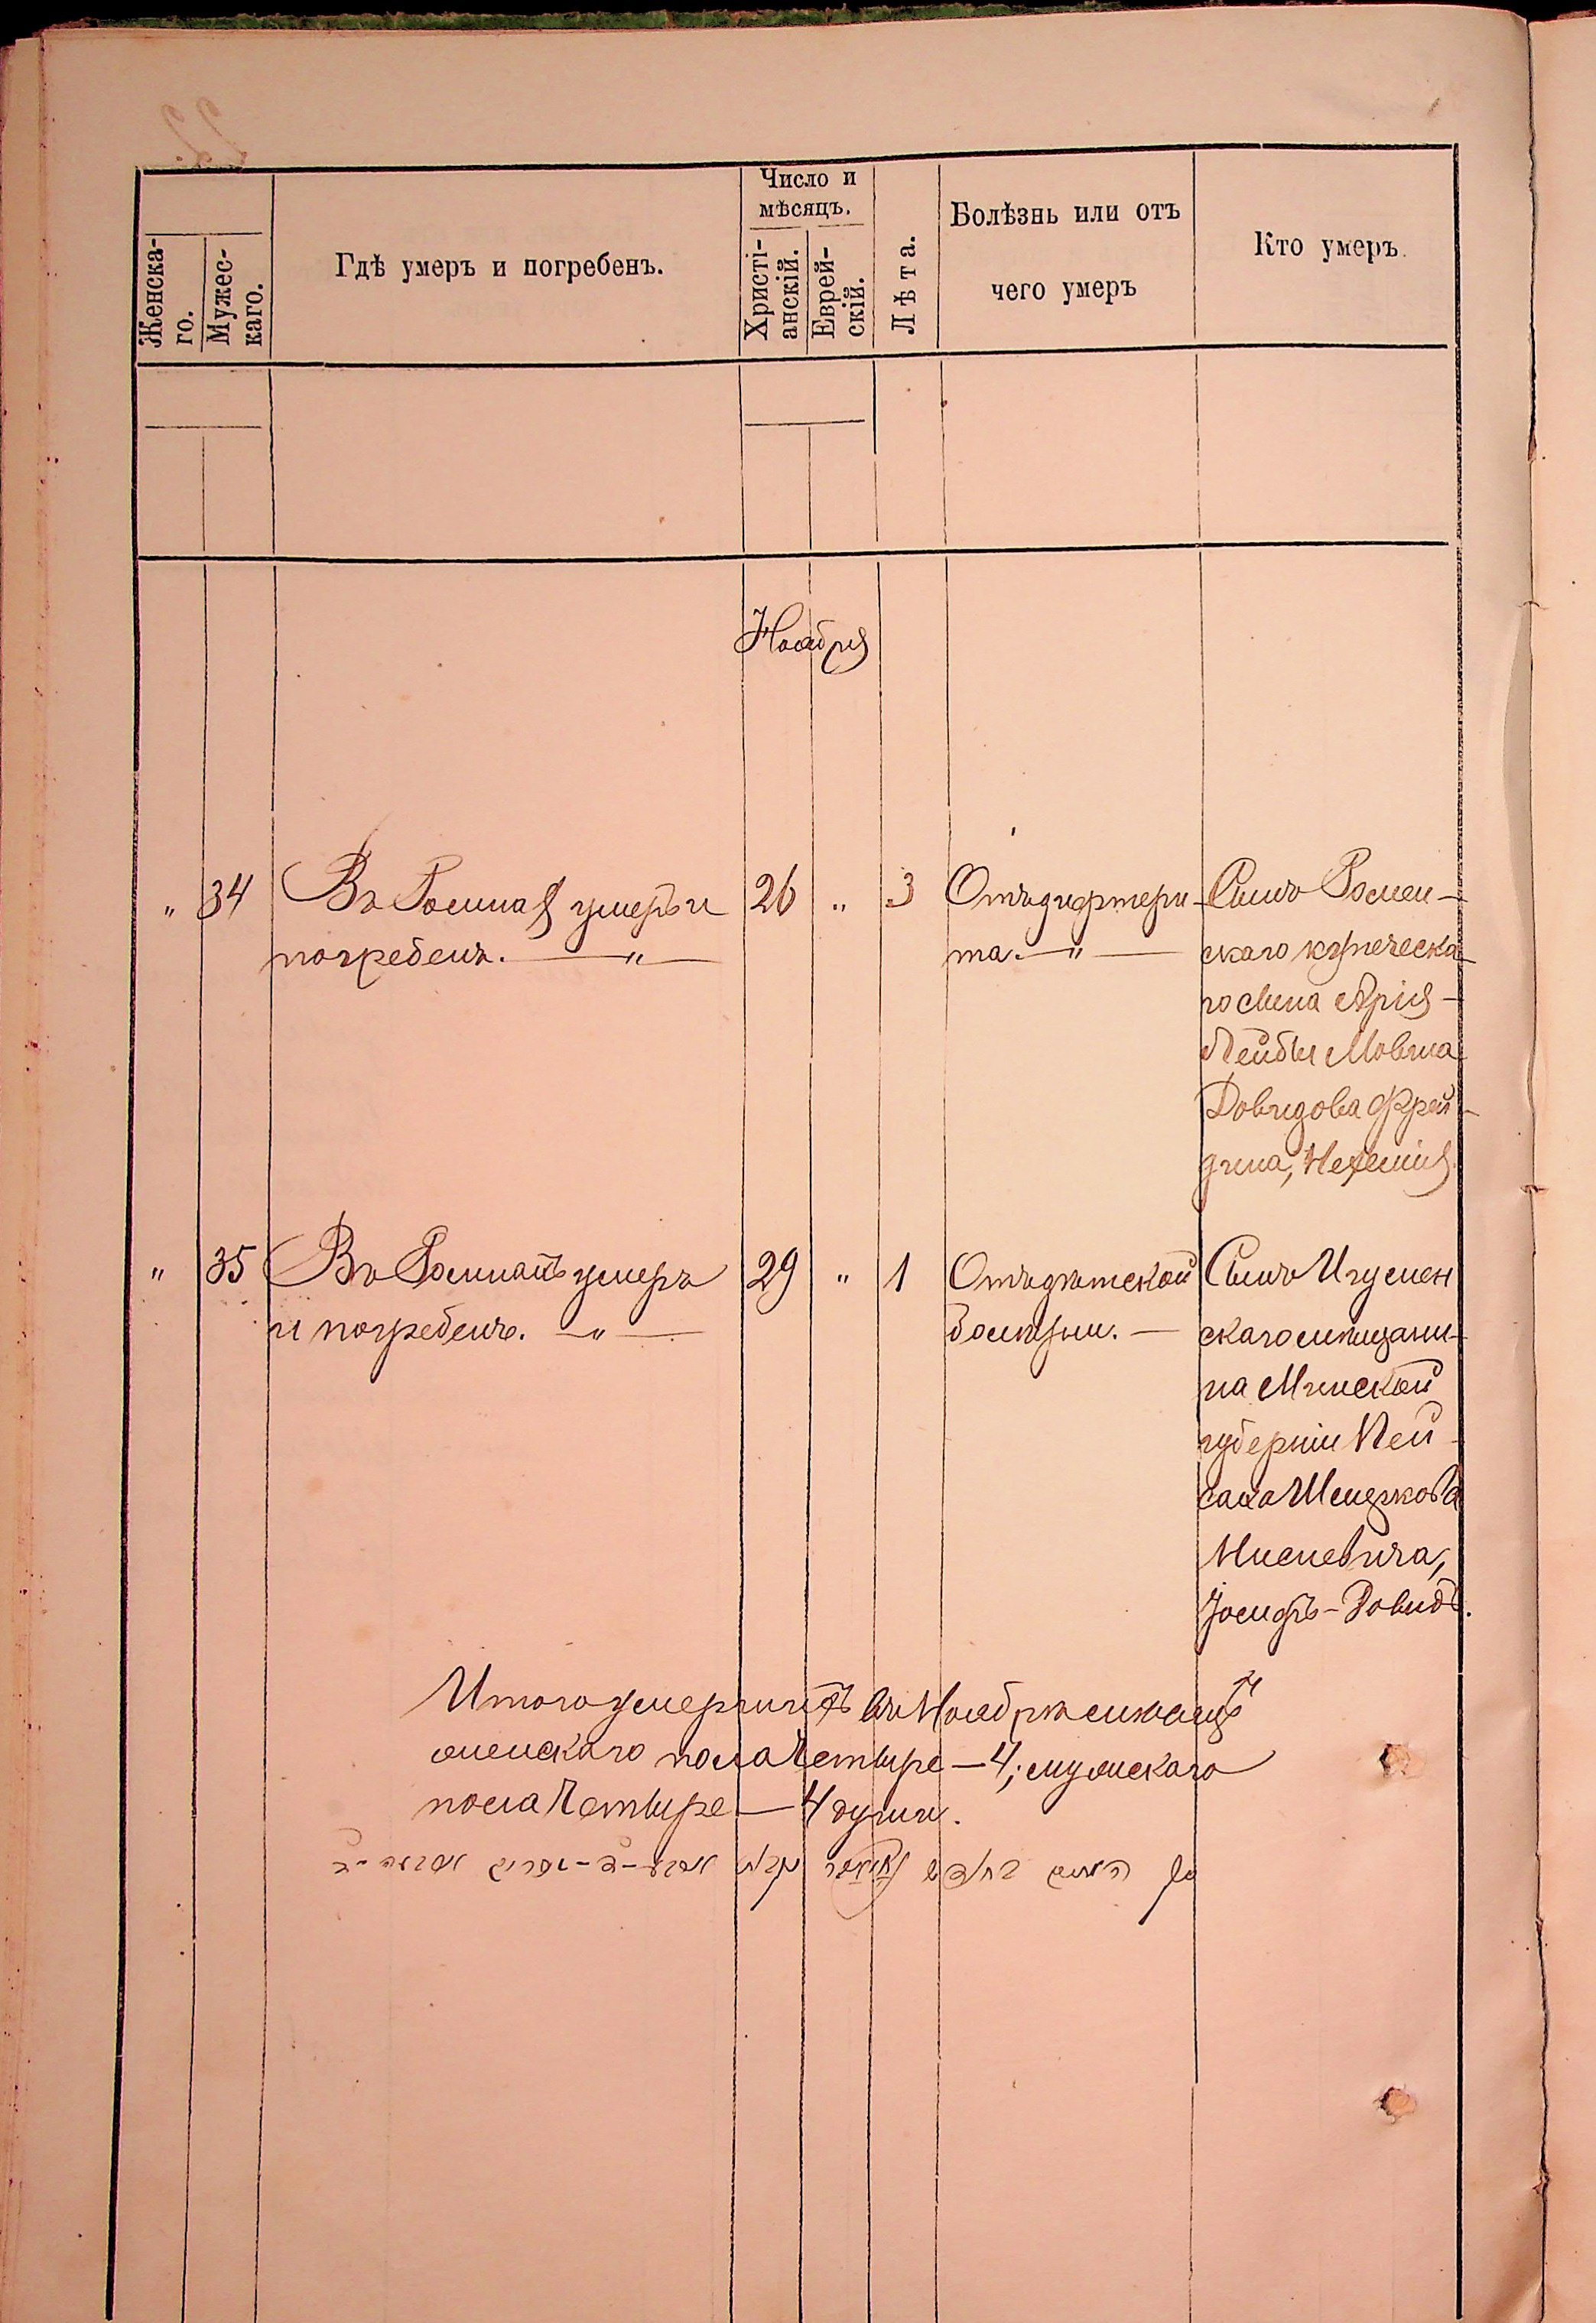 Женска-
го.
Мужес-
каго.
Гдѣ умеръ и погребенъ.
Число и
мѣсяцъ.
Христі-
анскій.
Еврей-
скій.
Лѣта.
Болѣзнь или отъ
чего умеръ
Кто умеръ.
Ноября
" 34 Въ Ромнахъ умеръ и 26 " 3 Отъ дифтери-
погребенъ. — " —
та. — " —
Сынъ Ромен-
скаго купеческа-
го сына Арія-
Лейбы Мовша
Довидова Фрей-
дина, Нехемія.
" 35 Въ Ромнахъ умеръ 29 " 1 Отъ дѣтской
и погребенъ. — " —
болѣзни. —
Сынъ Игумен
скаго мѣщани-
на Минской
губерніи Пей-
саха Шмеркова
Нисневича,
Іосифъ-Довидъ.
Итого умершихъ въ Ноябрѣ мѣсяцѣ
женскаго пола четыре — 4; мужескаго
пола четыре — 4 души.